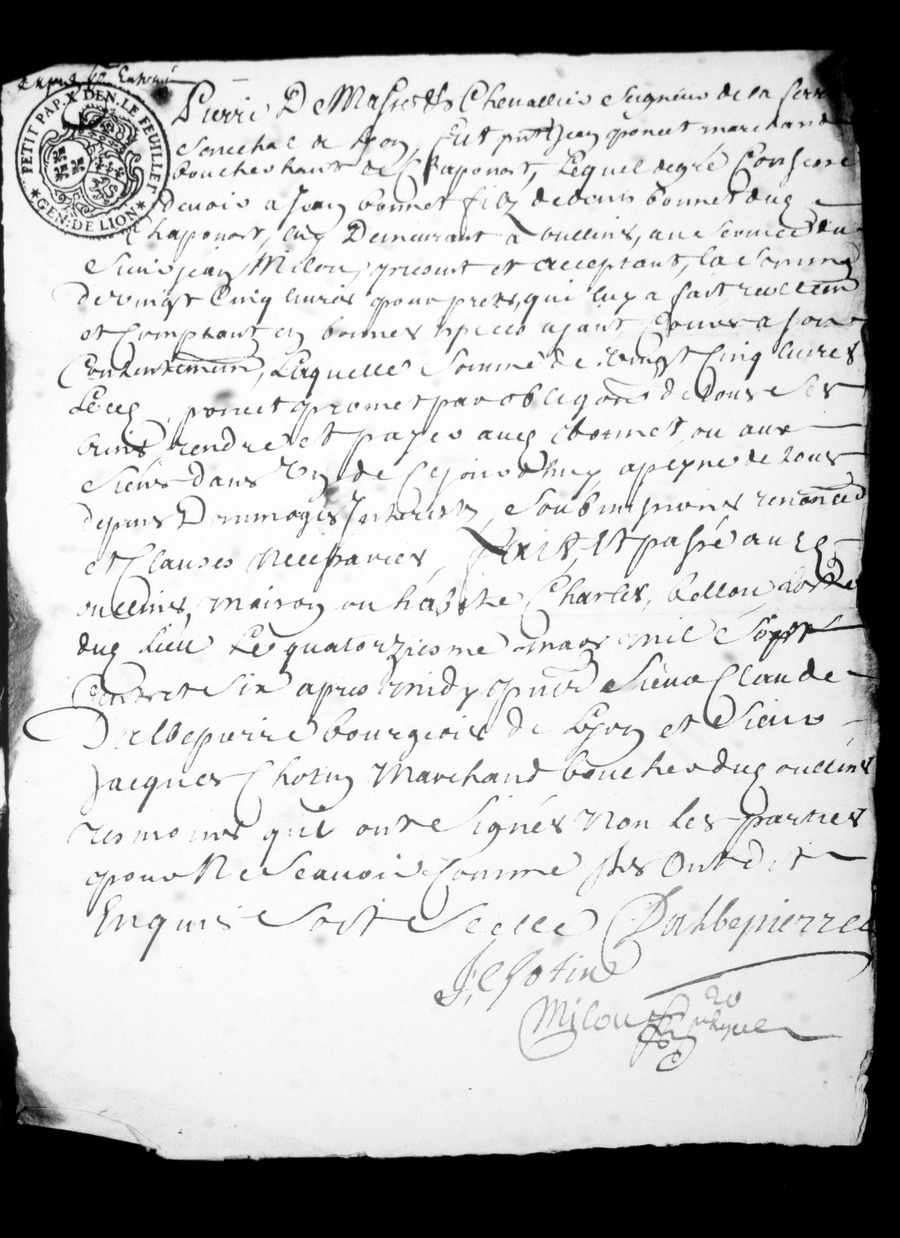 PETIT PAP. X DEN. LE FEUILLET
GEN. DE LION
Pierre De Chevallier Seigneur de la Ferr
Senechal de Lyon, fut pnt Jean poncet marchand
boucher hant de Chaponost, Lequel de gré Confesse
Devoir a Jean bonnet filz de denis bonnet dud
Chaponost, luy Demeurant a oullins, au Service du
Sieur jean Milou, present et acceptant, la somme
de vingt Cinq livres pour prets, qui luy a fait
et Comptant en bonnes speces ajant Cours a son
Contentement, Laquelle Somme de vingt Cinq livres
Led poncet promet par obligaon de tous ses
biens rendre et payer aud bonnet, ou aux
Siens dans Un de Cejourdhuy, a peyne de tous
depans Dommages Interestz, Soubmissions renonce
et Clauses necessaires, Fait, Et passé aud
oullins, maison ou habite Charles, bellou hoste
dud Lieu Le quatorziesme mars mil Sept
Cent et Six apres midy Sieur Claude
Dalbepierre bourgeois de Lyon et Sieur
Jacques Chotin Marchand boucher dud oullins
tesmoins qui ont Signés Non les parties
pour Ne Scavoir Comme Ils Ont dit
Enquis Soit Scellé Dalbepierre
J. Chotin
Milou